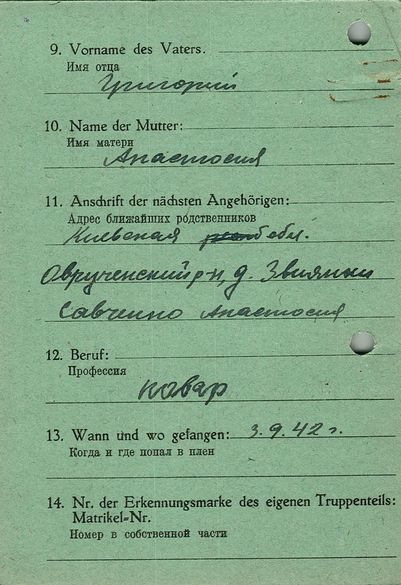 9. Vorname des Vaters.
Имя отца
Григорий
10. Name der Mutter:
Имя матери
Анастосия
11. Anschrift der nächsten Angehörigen:
Адрес ближайших родственников
Киевская обл.
Оврученский р-н, д.
Савченко Анастосия
12. Beruf:
Профессия
повар
13. Wann und wo gefangen: 3.9.42 г.
Когда и где попал в плен
14. Nr. der Erkennungsmarke des eigenen Truppenteils:
Matrikel-Nr.
Номер в собственной части